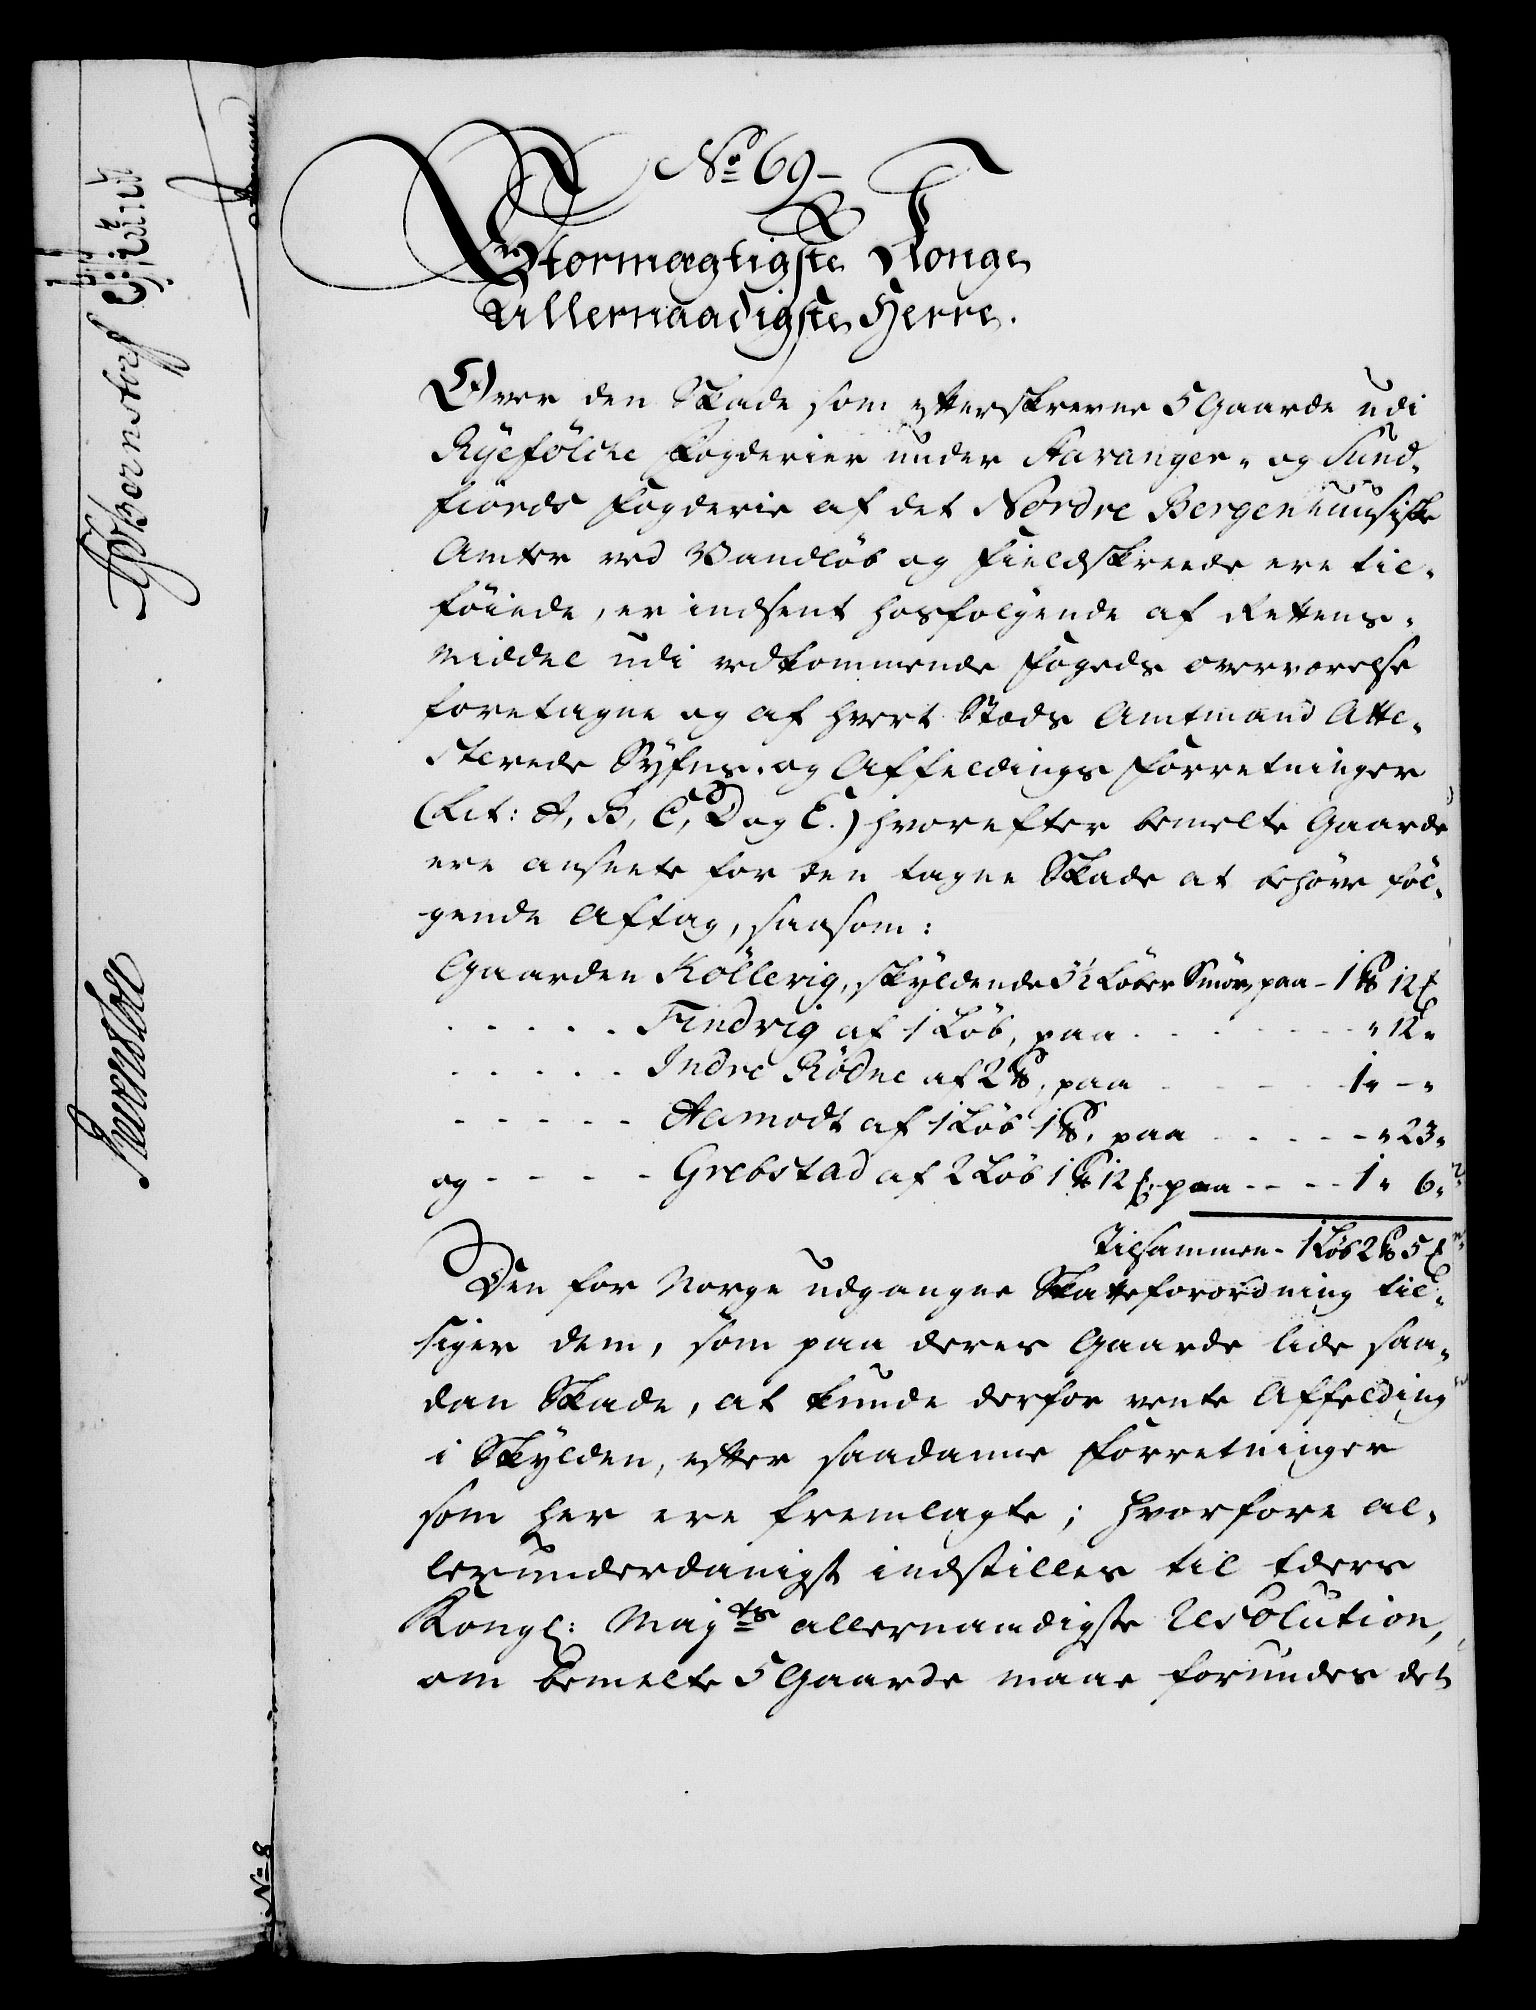 No 69-
Stormægtigste Konge
Allernaadigste Herre.
Over den Skade som efterskrevne 5 Gaarde udi
Ryefölche Fogderier under Stavanger- og Sund-
fiords Fogderie af det Nordre Bergenhuusiske
Amter ved Vandløb og Fieldskreede ere til-
føiede, er indsent hosfølgende af Rettens-
middel udi vedkommende Fogeds overværelse
foretagne og af hvert Stæds Amtmand Atte-
sterede Syfns- og Affældings Forretninger
(Lit: A, B, C, D og E.) hvorefter bemelte Gaarde
ere ansеete for den tagne Skade at behøve føl-
gende Aftag, saasom:
Gaarden Köllevig, skyldende 3½ Løber Smør, paa - 1 ℔ 12
- - - - - Findvig af 1 Løb, paa - - - - " 12 "
- - - - - Indre Rödne af 2 ℔, paa - - - 1 " - "
- - - - - Aamodt af 1 Løb 1 ℔, paa - - - - " 23 "
og - - - - Grebstad af 2 Løb 1 ℔ 12 , paa - - - 1 " 6 "
Tilsammen - 1 Løb 2 ℔ 5
Den for Norge udgangne Skatteforordning til-
siger dem, som paa deres Gaarde lide saa-
dan Skade, at kunde derfor vente Affelding
i Skylden, efter saadanne Forretninger
som her ere fremlagte; hvorfore al-
lerunderdanigst indstilles til Eders
Kongl: Majts allernaadigste Resolution,
om bemelte 5 Gaarde maae forundes det
No 8